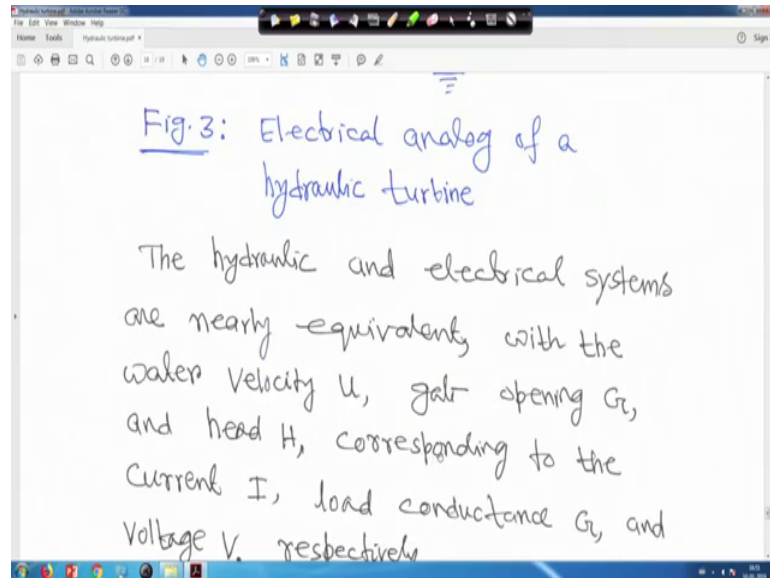 Hydraulic turbine.pdf - Adobe Acrobat Reader DC
File Edit View Window Help
Home Tools Hydraulic turbine.pdf × Sign
Fig. 3: Electrical analog of a
hydraulic turbine
The hydraulic and electrical systems
are nearly equivalent, with the
water velocity U, gate opening G,
and head H, corresponding to the
current I, load conductance G, and
voltage V, respectively